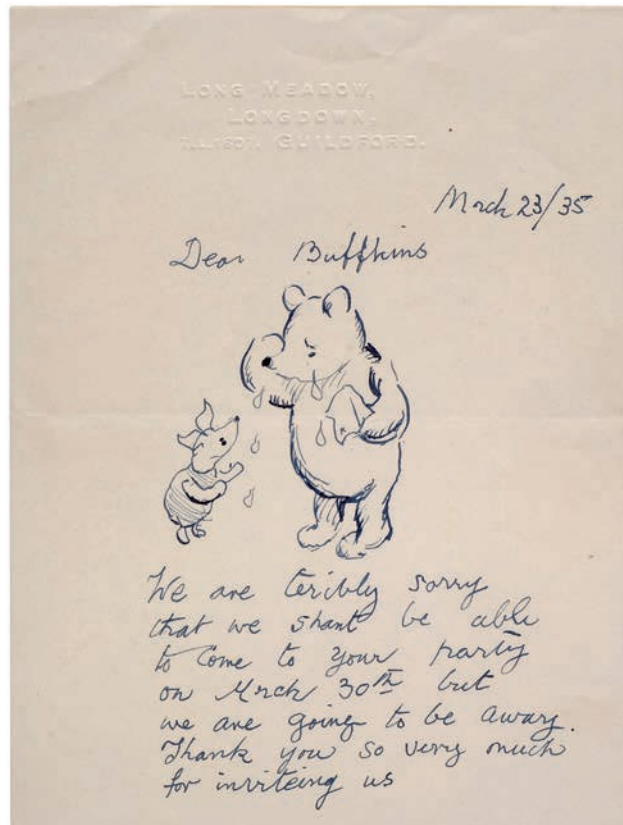 LONG MEADOW,
LONGDOWN.
GUILDFORD.
March 23/35
Dear Buffkins
We are teribly sorry
that we shant be able
to come to your party
on March 30th but
we are going to be away.
Thank you so very much
for inviteing us